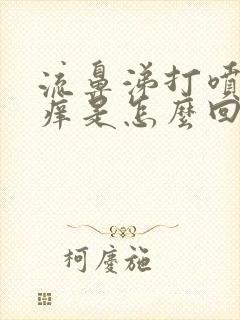 流鼻涕打噴
痒是怎麼回
柯慶施